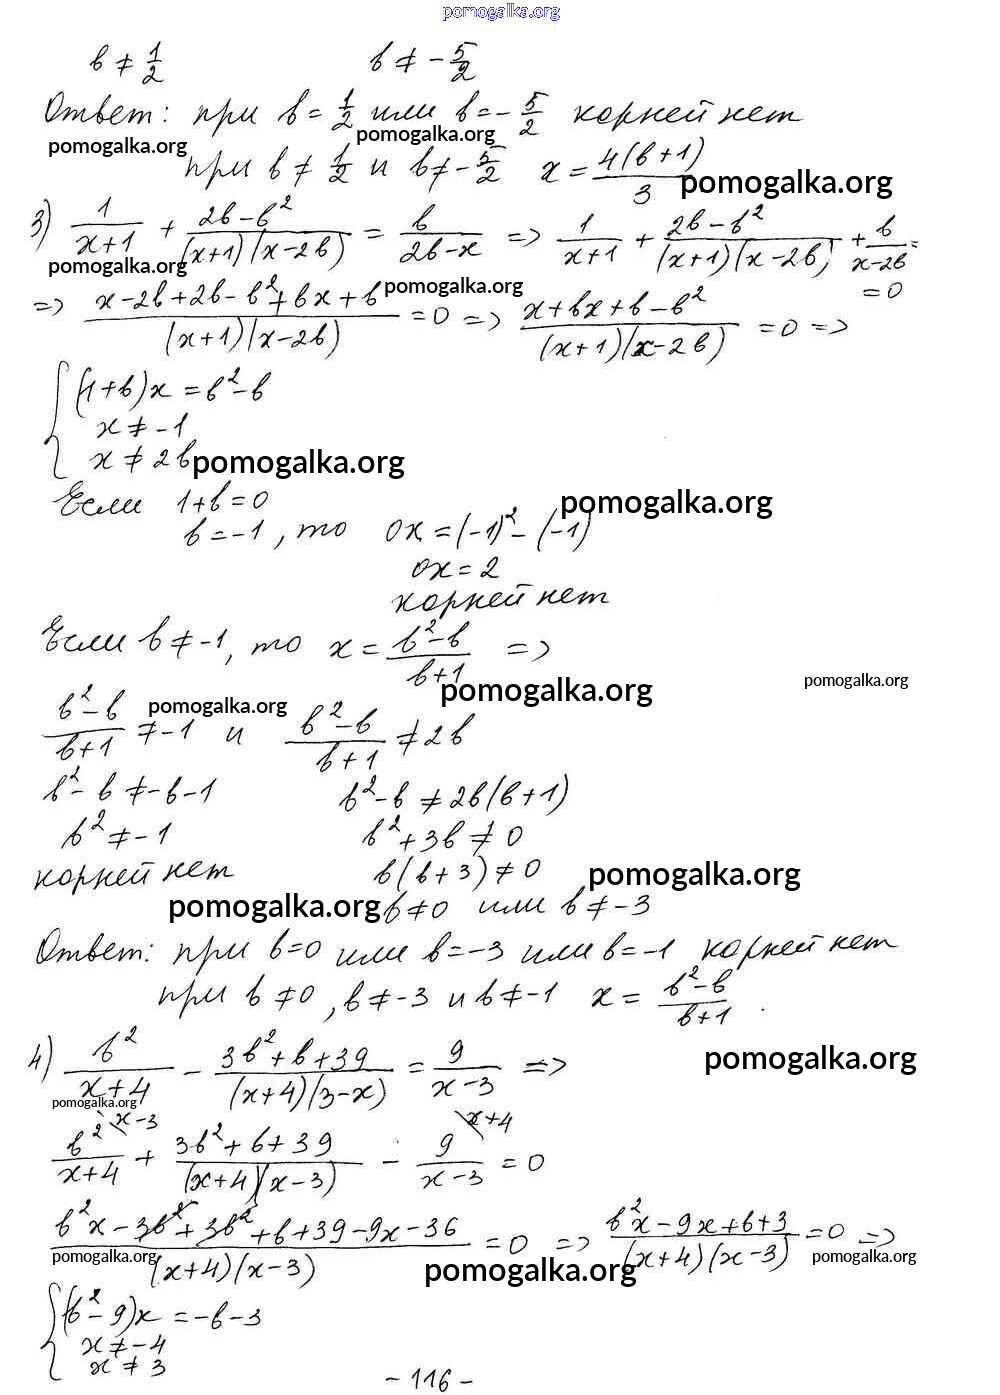 pomogalka.org
b ≠ 1/2 b ≠ - 5/2
Ответ: при b = 1/2 или b = - 5/2 корней нет
pomogalka.org pomogalka.org
при b ≠ 1/2 и b ≠ - 5/2 x = 4(b+1)/3
pomogalka.org
3) 1/(x+1) + (2b-b²)/((x+1)(x-2b)) = b/(2b-x) => 1/(x+1) + (2b-b²)/((x+1)(x-2b)) + b/(x-2b) =
= 0
pomogalka.org pomogalka.org
=> (x-2b+2b-b²+bx+b)/((x+1)(x-2b)) = 0 => (x+bx+b-b²)/((x+1)(x-2b)) = 0 =>
{ (1+b)x = b²-b
x ≠ -1
x ≠ 2b
pomogalka.org
Если 1+b=0
pomogalka.org
b = -1, то 0x = (-1)² - (-1)
0x = 2
корней нет
Если b ≠ -1, то x = (b²-b)/(b+1) =>
pomogalka.org pomogalka.org
(b²-b)/(b+1) ≠ -1 и (b²-b)/(b+1) ≠ 2b
pomogalka.org
b²-b ≠ -b-1 b²-b ≠ 2b(b+1)
b² ≠ -1 b²+3b ≠ 0
корней нет b(b+3) ≠ 0
pomogalka.org
pomogalka.org b ≠ 0 или b ≠ -3
Ответ: при b=0 или b=-3 или b=-1 корней нет
при b ≠ 0, b ≠ -3 и b ≠ -1 x = (b²-b)/(b+1).
4) b²/(x+4) - (3b²+b+39)/((x+4)(3-x)) = 9/(x-3) =>
pomogalka.org
pomogalka.org
b²\x-3/(x+4) + (3b²+b+39)/((x+4)(x-3)) - 9\x+4/(x-3) = 0
(b²x-3b²+3b²+b+39-9x-36)/((x+4)(x-3)) = 0 => (b²x-9x+b+3)/((x+4)(x-3)) = 0 =>
pomogalka.org pomogalka.org pomogalka.org
{ (b²-9)x = -b-3
x ≠ -4
x ≠ 3
- 116 -